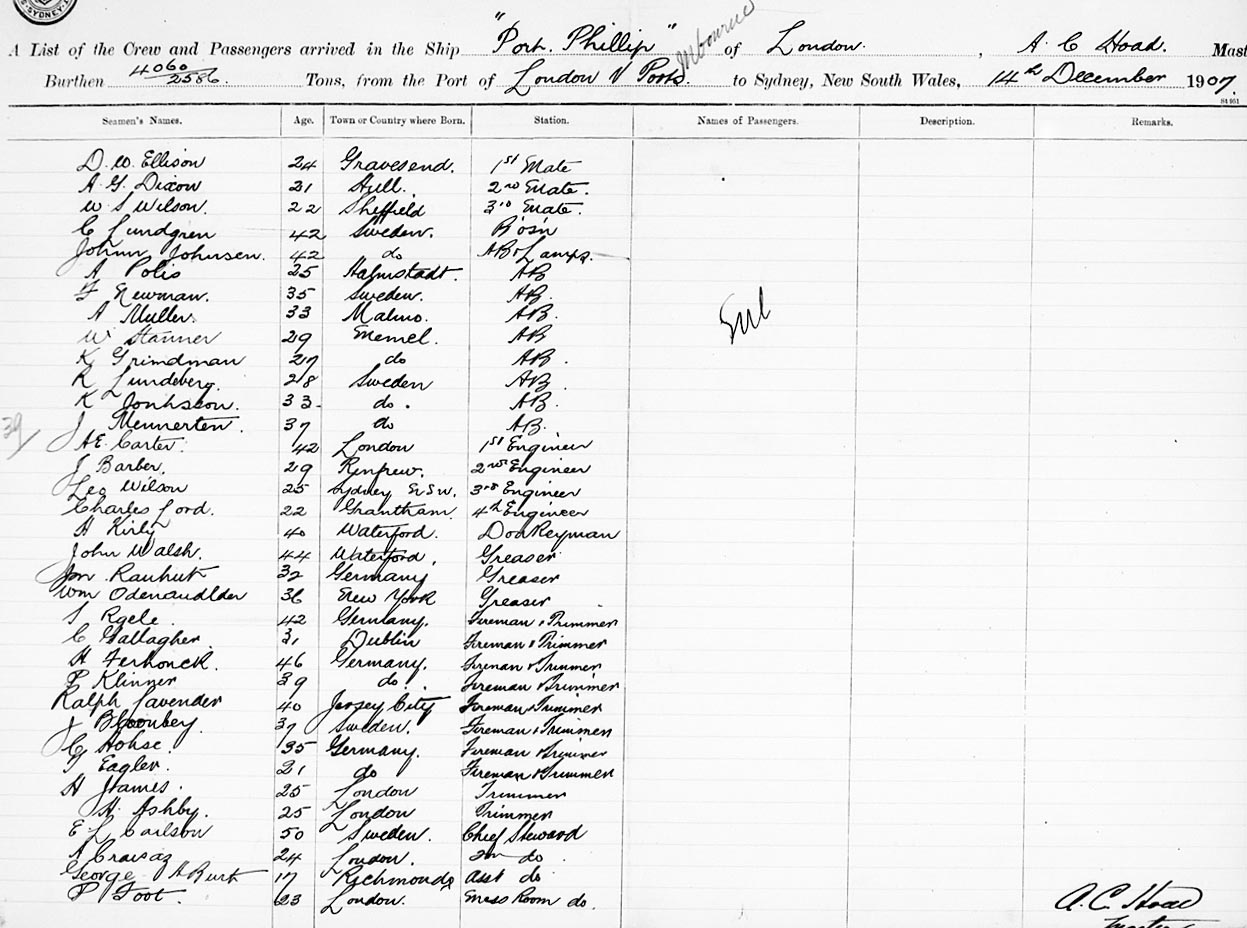 SYDNEY
A List of the Crew and Passengers arrived in the Ship "Port Phillip" of London, A. C Hoad. Mast
Burthen 4060/2586. Tons, from the Port of London V Ports. to Sydney, New South Wales, 14th December 1907.
Seamen's Names. Age. Town or Country where Born. Station. Names of Passengers. Description. Remarks.
D. W. Ellison 24 Gravesend. 1st Mate
A. G. Dixon 31 Hull. 2nd Mate.
W. S Wilson. 22 Sheffield 3rd Mate.
C Lundgren 42 Sweden. Bosn
Johnn Johnsen. 42 do AB & Lamps.
A Polis 25 Halmstadt. AB
F Newman. 35 Sweden. AB.
A Muller 33 Malmo. AB. Nil
W Stanner 29 Memel. AB
K Grimdman 27 do AB.
K Lundeberg. 28 Sweden AB.
K Jonhsson. 33 do. AB.
J Mennerten. 37 do AB.
39/
A E. Carter. 42 London 1st Engineer
J Barber. 29 Renfrew. 2nd Engineer
Leo Wilson 25 Sydney N S W. 3rd Engineer
Charles Lord. 22 Grantham. 4th Engineer
H Kirly 40 Waterford. Donkeyman
John Walsh. 44 Waterford. Greaser
Jn Rauhut 32 Germany Greaser
Wm Odenaudlder 36 New York Greaser
S Rgele. 42 Germany. Fireman & Trimmer
C Gallagher. 31 Dublin Fireman & Trimmer
H Ferhonck. 46 Germany. Fireman & Trimmer
P Klinner 39 do. Fireman & Trimmer
Ralph Lavender 40 Jersey City Fireman & Trimmer
J Bloonbey 37 Sweden. Fireman & Trimmer
C Hohse. 35 Germany. Fireman & Trimmer
T Eagler. 21 do Fireman & Trimmer
H James. 25 London Trimmer
H. Ashby. 25 London Trimmer
E L Carlson 50 Sweden. Chief Steward
A Cravaz 24 London. 2nd do
George A Burt 17 Richmond Asst do
P Foot. 23 London. Mess Room do.
A. C. Hoad
Master